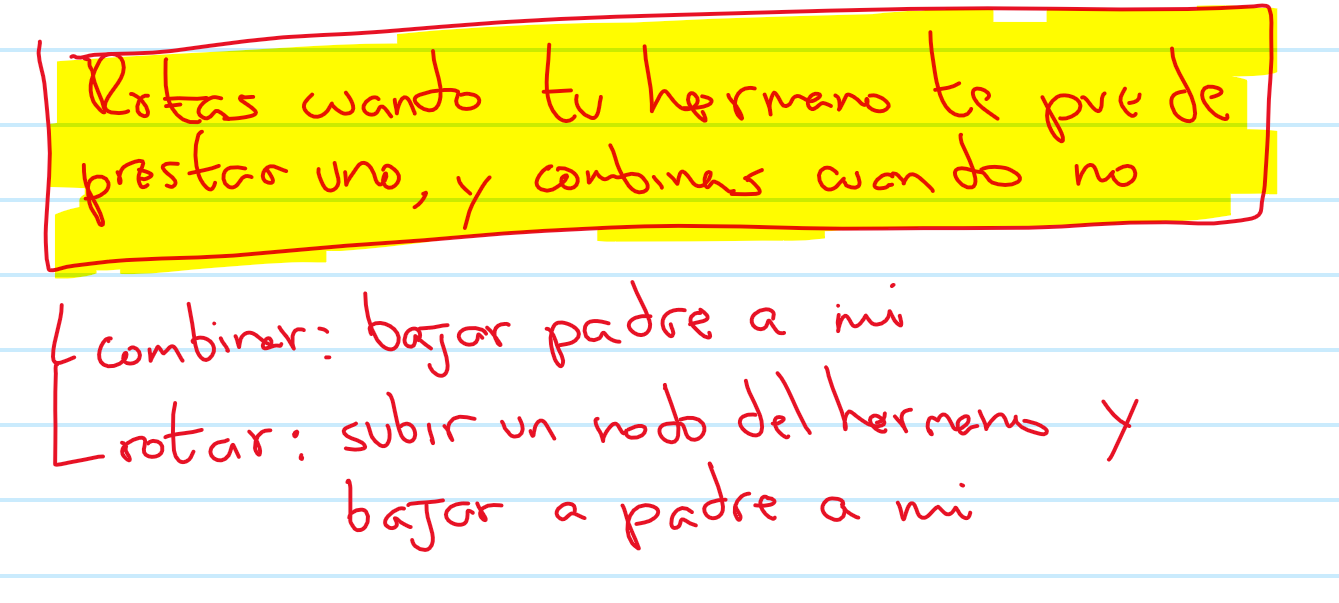 Rotas cuando tu hermano te puede
prestar uno, y combinas cuando no
combinar: bajar padre a mi
rotar: subir un nodo del hermano y
bajar a padre a mi